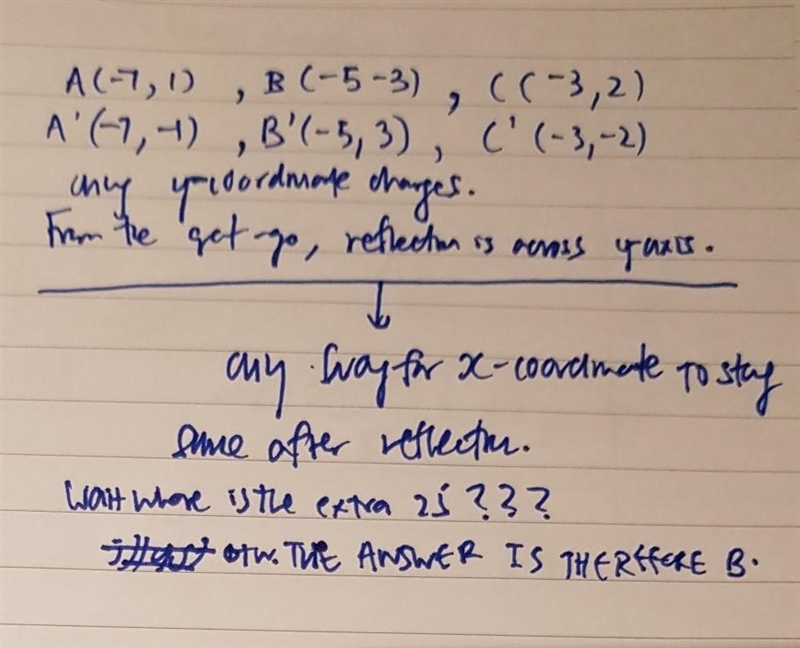 A(-7,1) , B(-5-3) , C(-3,2)
A'(-7,-1) , B'(-5,3) , C'(-3,-2)
only y-coordinate changes.
From the get-go, reflection is across y-axis.
only way for x-coordinate to stay
same after reflection.
Wait where is the extra 25???
otw. THE ANSWER IS THEREFORE B.